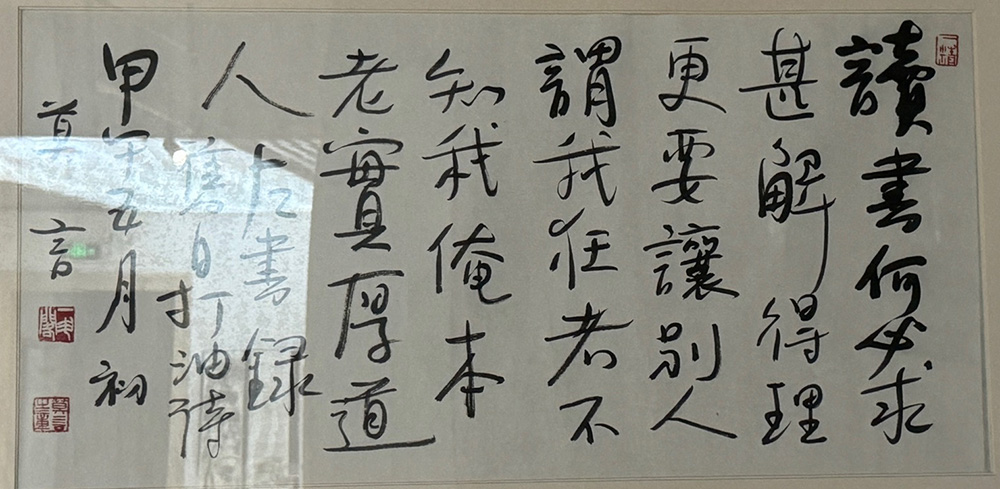 讀書何必求
甚解得理
更要讓別人
謂我狂者不
知我俺本
老實厚道
人 左書錄
舊日打油詩
甲午五月初
莫言